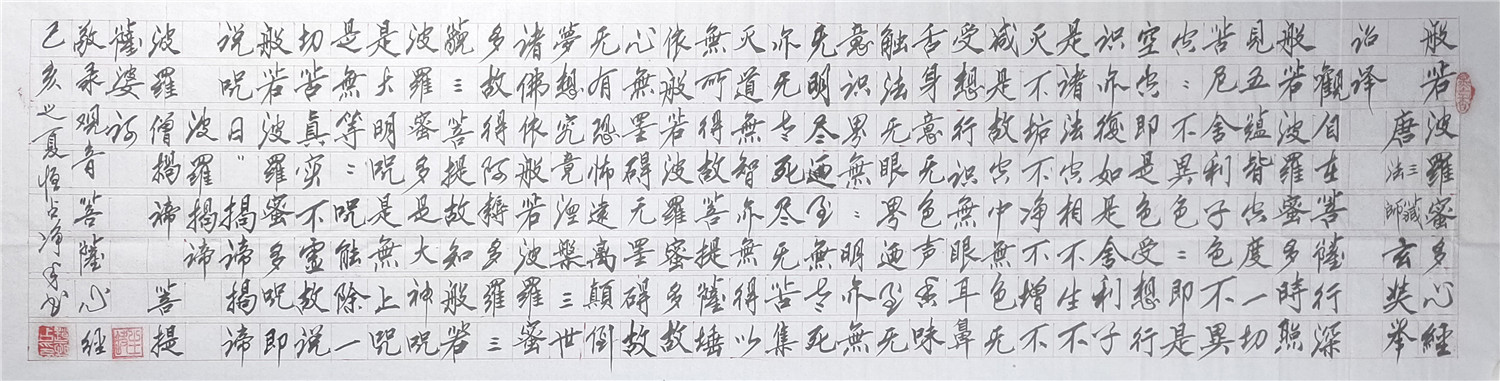 般若波羅蜜多心經
唐三藏法師玄奘奉
诏译
觀自在菩薩行深
般若波羅蜜多時照
見五蕴皆空度一切
苦厄舍利子色不異
空:不異色:即是
空空即是色受想行
识亦復如是舍利子
是诸法空相不生不
灭不垢不净不增不
减是故空中無色无
受想行识无眼耳鼻
舌身意无色声香味
触法无眼界迺至无
意识界無:明亦無
无明尽迺至無老死
亦无老死尽无苦集
灭道無智亦無得以
無所得故菩提薩埵
依般若波羅蜜多故
心無罣碍无罣碍故
无有恐怖遠離顛倒
夢想究竟涅槃三世
诸佛依般若波羅蜜
多故得阿耨多羅三
藐三菩提故知般若
波羅蜜多是大神咒
是大明咒是無上咒
是無等:咒能除一
切苦真实不虚故说
般若波羅蜜多咒即
说咒曰揭谛揭谛
波羅揭谛
波羅僧揭谛菩提
薩婆诃
敬录观音菩薩心經
己亥之夏恒占净手书